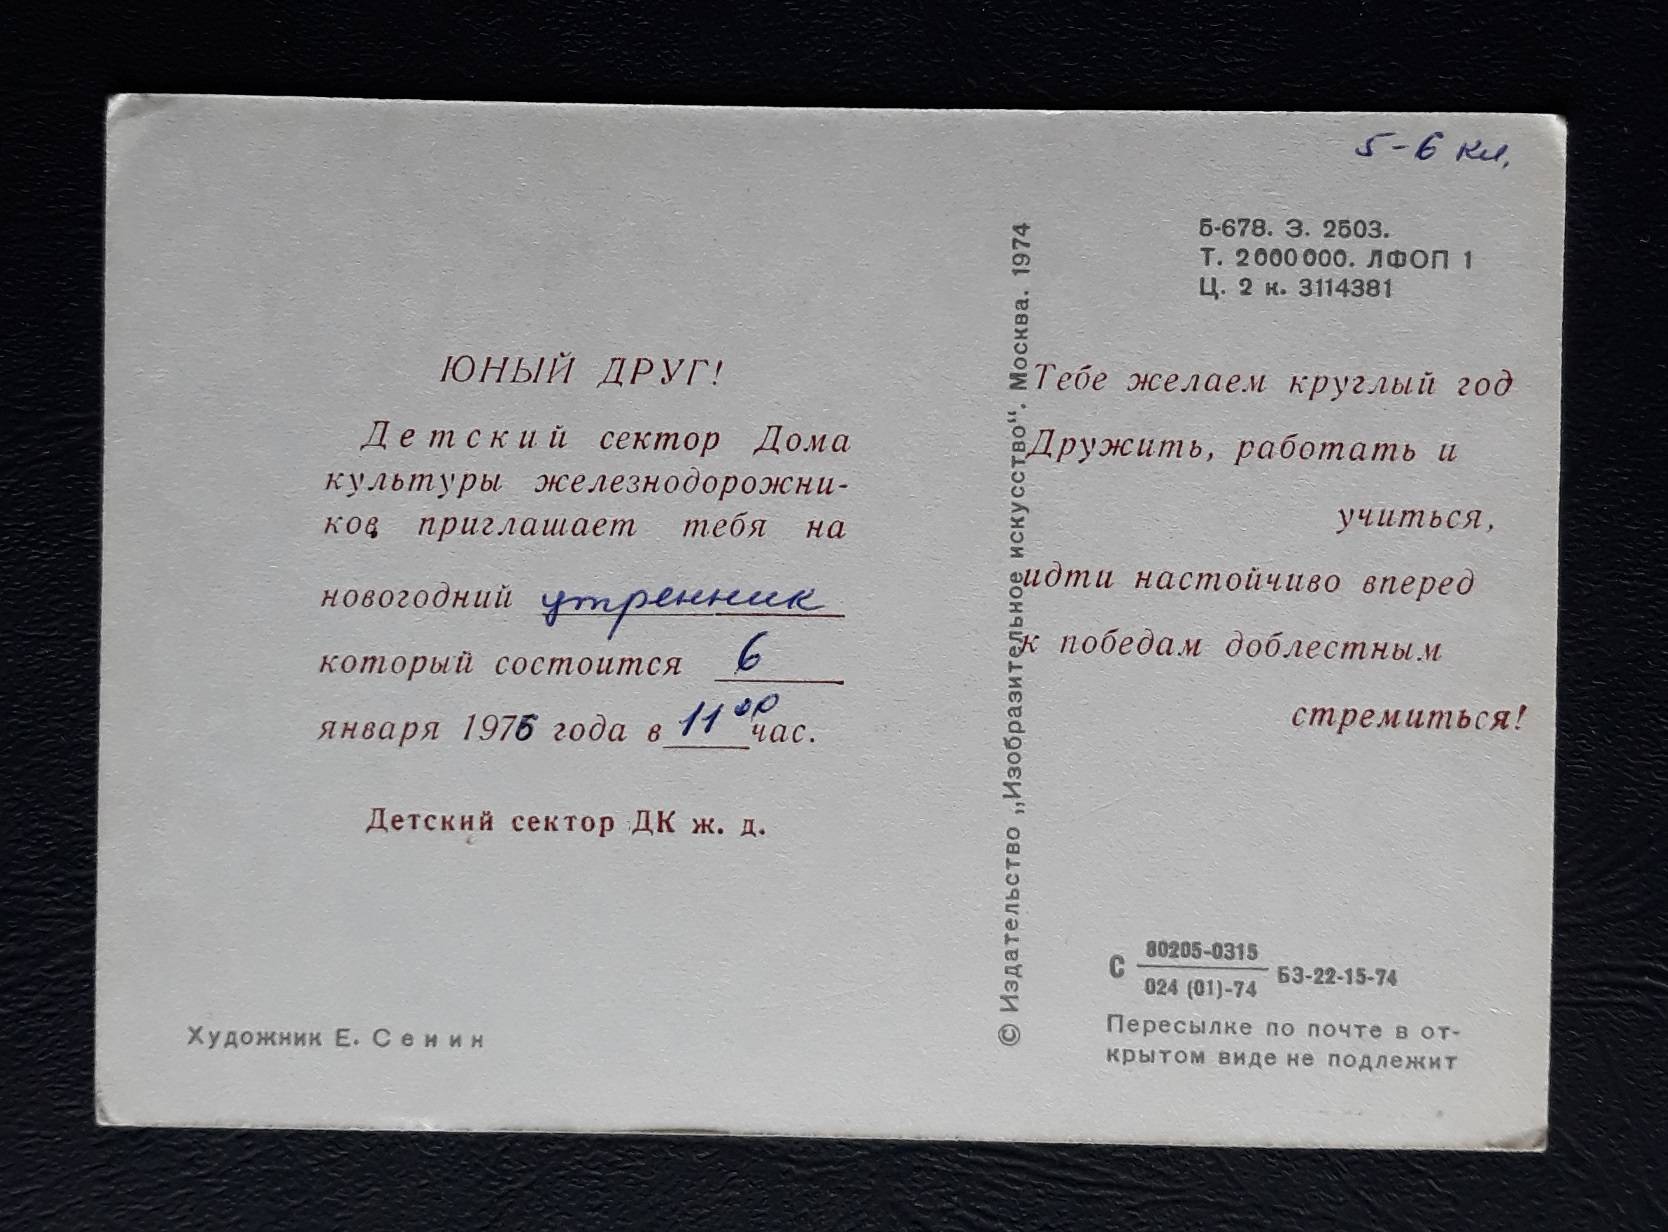 5-6 кл.
Б-678. З. 2503.
Т. 2000000. ЛФОП 1
Ц. 2 к. 3114381
ЮНЫЙ ДРУГ!
Детский сектор Дома
культуры железнодорожни-
ков приглашает тебя на
новогодний утренник
который состоится 6
января 1976 года в 11 00 час.
Детский сектор ДК ж. д.
Художник Е. Сенин
© Издательство „Изобразительное искусство“. Москва. 1974
Тебе желаем круглый год
Дружить, работать и
учиться,
идти настойчиво вперед
к победам доблестным
стремиться!
С 80205-0315
024 (01)-74 БЗ-22-15-74
Пересылке по почте в от-
крытом виде не подлежит